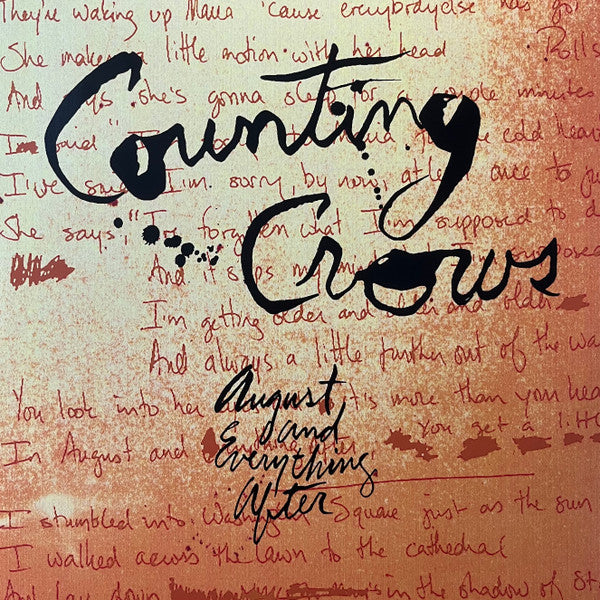 They're waking up Maria 'cause everybody else has got
She makes a little motion with her head
Rolls
And says she's gonna sleep for a couple minutes
Counting
I've said I'm sorry, by now, at least once to
Crows
She says, "I've forgotten what I'm supposed to d
And it slips my mind
I'm getting older and older and older
And always a little further out of the wa
August
and
Everything
After
You look into her it's more than your hea
In August and
You get a litt
I stumbled into Washington Square just as the sun
I walked across the lawn to the cathedral
And lay down in the shadow of St